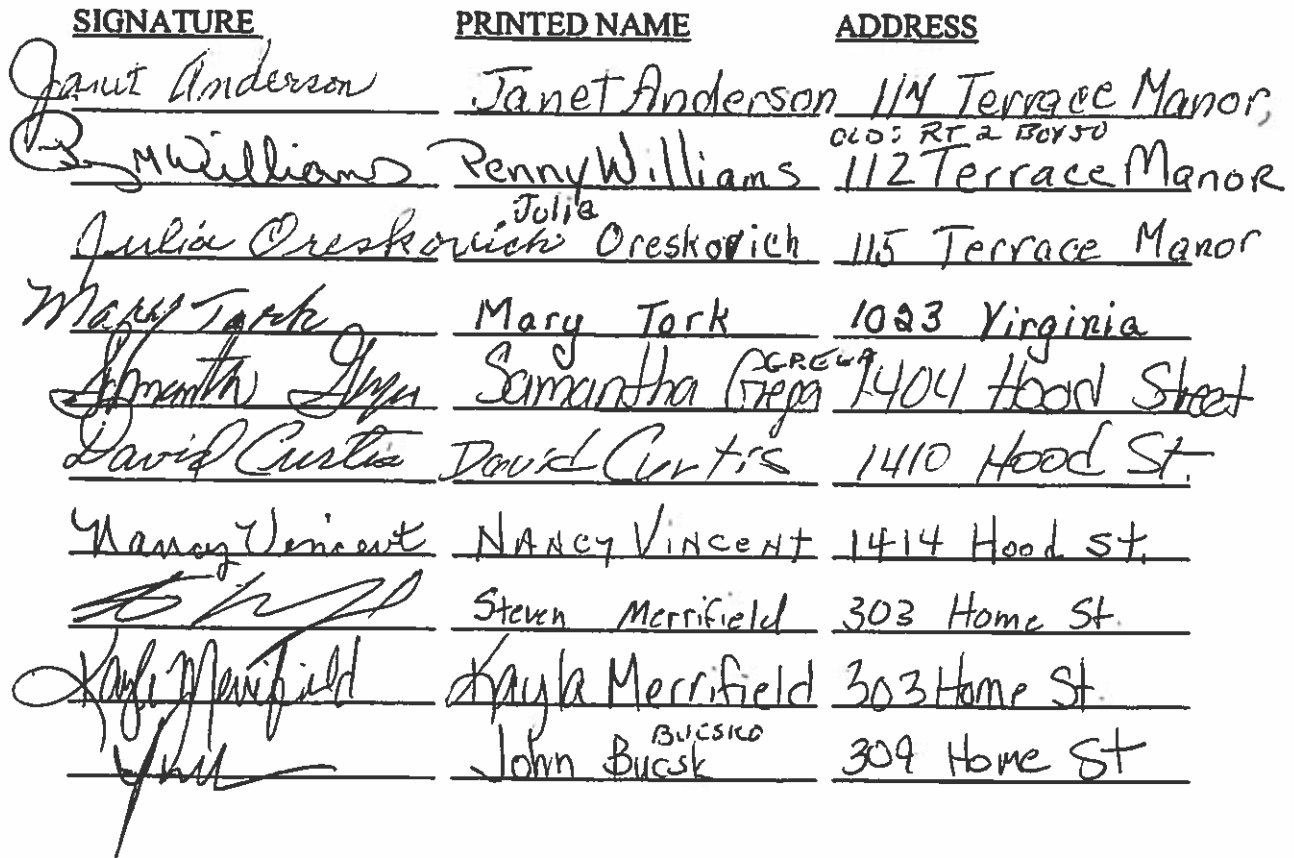 SIGNATURE PRINTED NAME ADDRESS
Janet Anderson Janet Anderson 114 Terrace Manor,
OLD: RT 2 BOX 50
Williams Penny Williams 112 Terrace Manor
Julia
Julia Oreskovich Oreskovich 115 Terrace Manor
Mary Tork Mary Tork 1023 Virginia
GREGA
Samantha Grega Samantha Grega 1404 Hood Street
David Curtis David Curtis 1410 Hood St.
Nancy Vincent NANCY VINCENT 1414 Hood St.
Steven Merrifield 303 Home St.
Kayla Merrifield Kayla Merrifield 303 Home St.
BUCSKO
John Bucsk 309 Home St